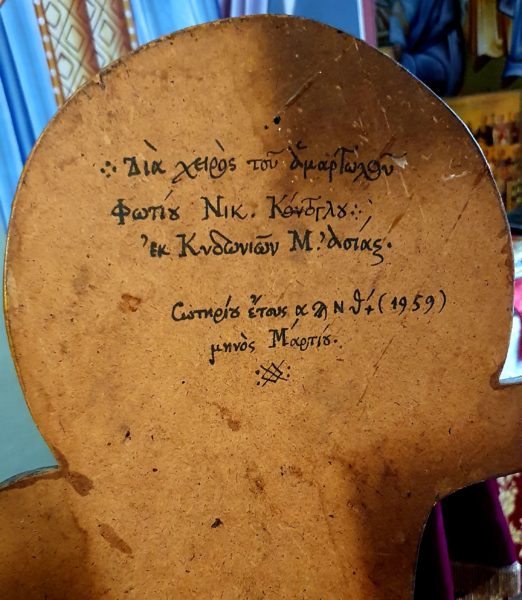 Διὰ χειρὸς τοῦ ἁμαρτωλοῦ
Φωτίου Νικ. Κόντογλου
ἐκ Κυδωνιῶν Μ. Ἀσίας.
Σωτηρίου ἔτους α ϡ Ν θ΄ (1959)
μηνὸς Μαρτίου.